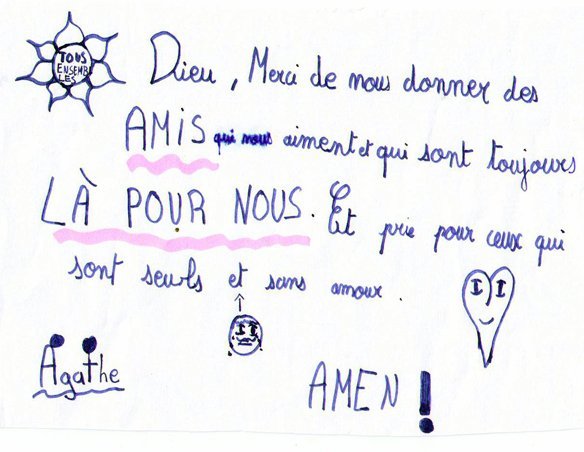 TOUS
ENSEMB
LES
Dieu, Merci de nous donner des
AMiS qui nous aiment et qui sont toujours
LÀ POUR NOUS. Et prie pour ceux qui
sont seuls et sans amour.
Agathe
AMEN !